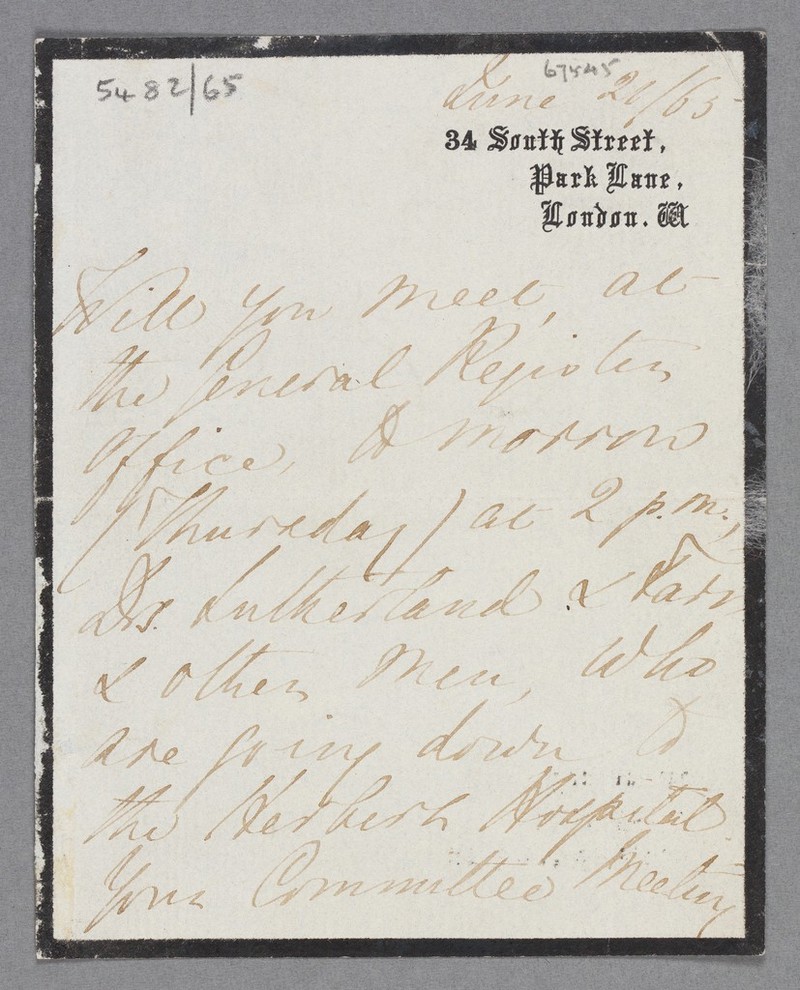 5482/65
67545
June 21/65
34 South Street,
Park Lane,
London. W
Will you meet, at
the General Register
Office, to morrow
(Thursday) at 2 p.m.,
Drs. Sutherland & Farr
& other men, who
are going down to
the Herbert Hospital
Your Committee Meeting